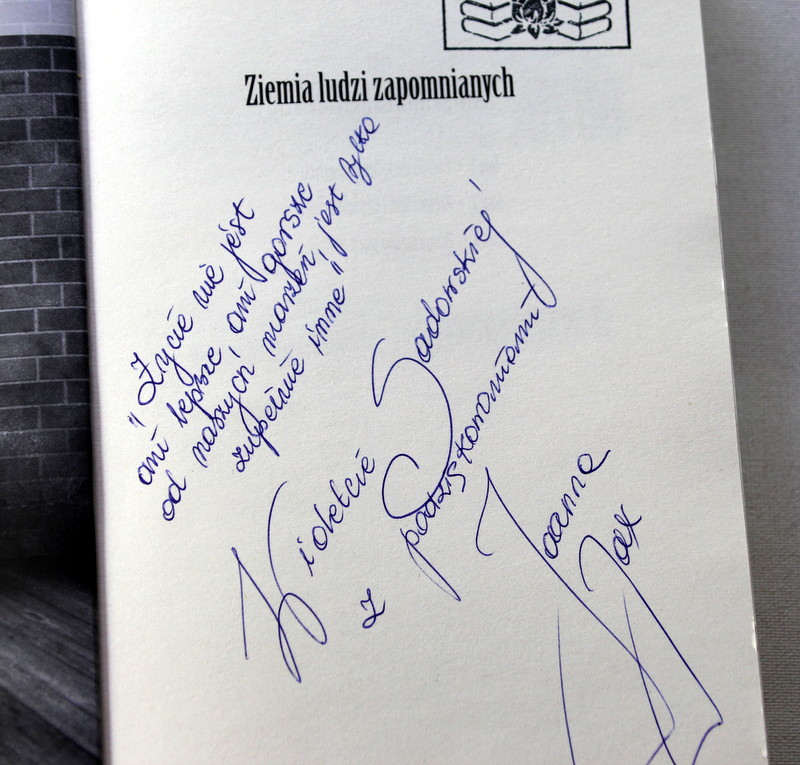 Ziemia ludzi zapomnianych
"Życie nie jest
ani lepsze, ani gorsze
od naszych marzeń, jest tylko
zupełnie inne"
Wiolecie Sadowskiej
z podziękowaniami
Joanna
Jax